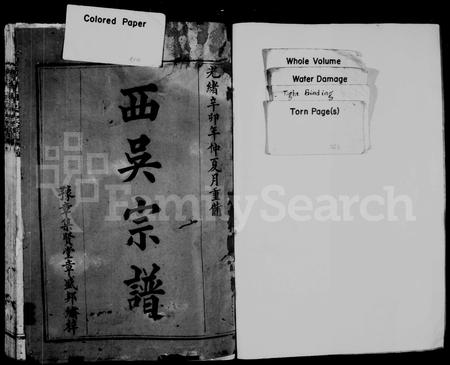 Colored Paper
光緒辛卯年仲夏月重脩
西吳宗譜
豫章集賢堂章盛邦繡梓
Whole Volume
Water Damage
Tight Binding
Torn Page(s)
FamilySearch